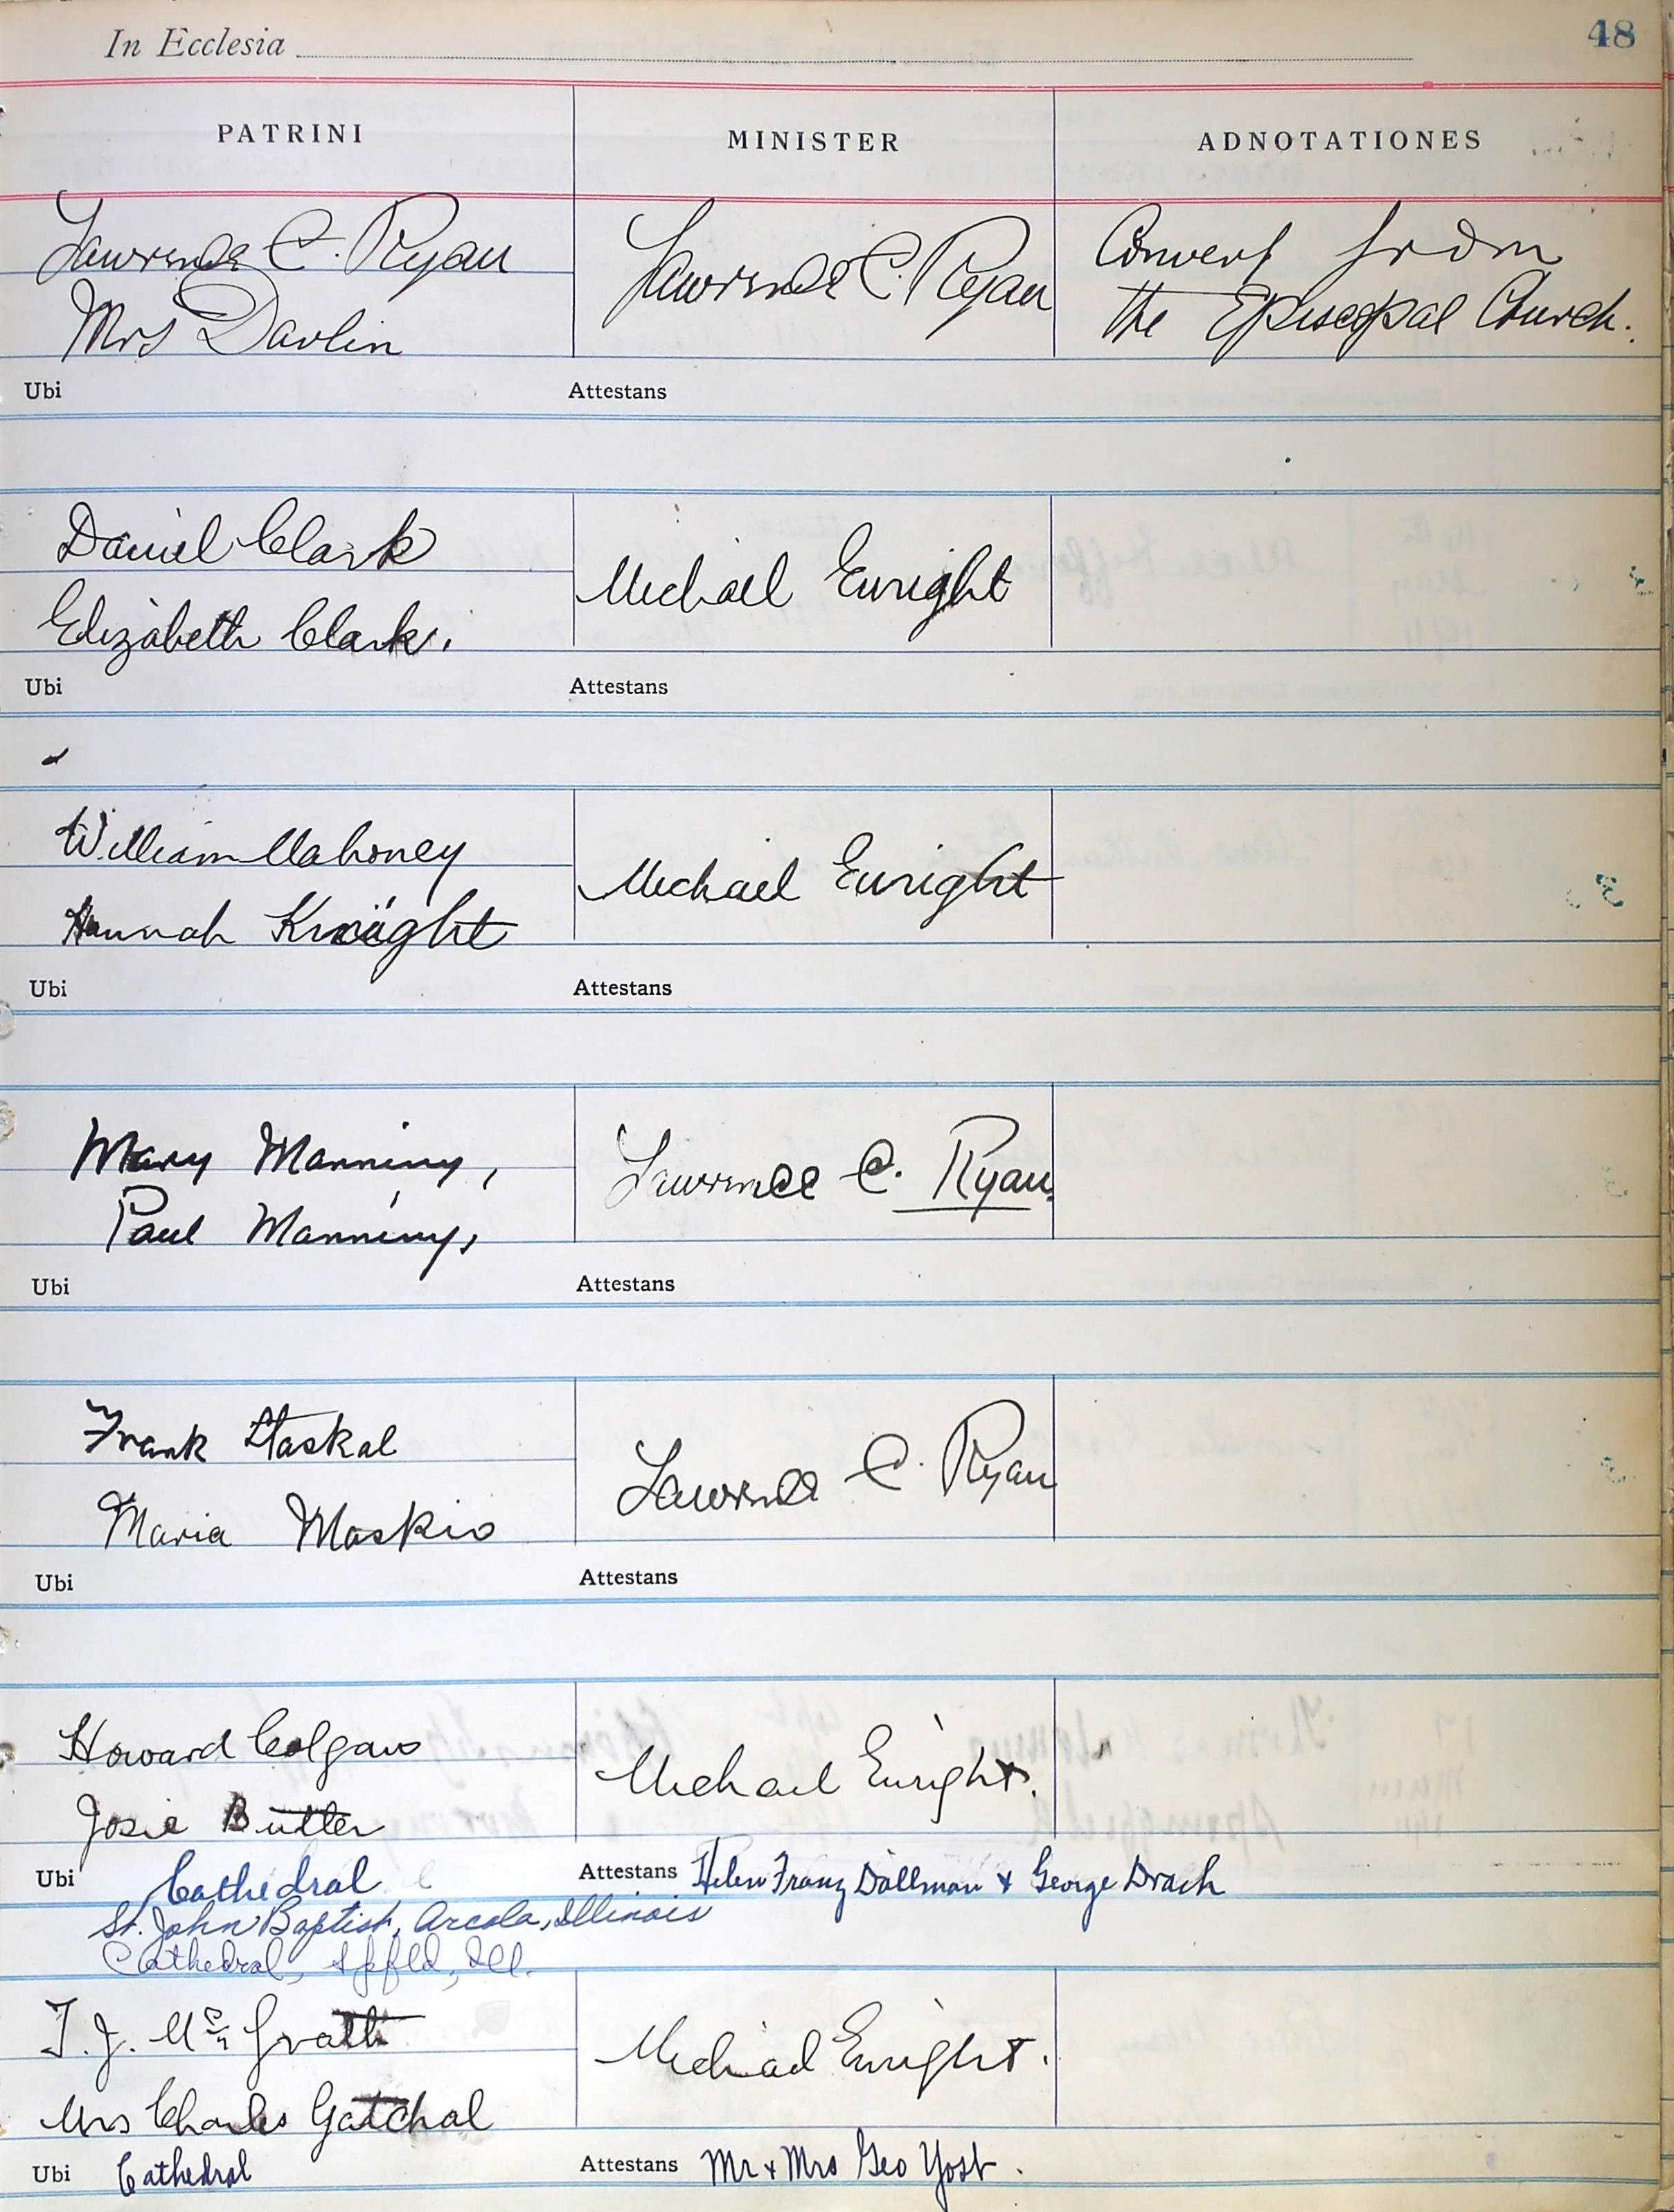 In Ecclesia
48
PATRINI MINISTER ADNOTATIONES
Lawrence C. Ryan
Mrs Davlin
Lawrence C. Ryan
Convert from
the Episcopal Church.
Ubi Attestans
Daniel Clark
Elizabeth Clark.
Michael Enright
Ubi Attestans
William Mahoney
Hannah Knight
Michael Enright
Ubi Attestans
Mary Manning,
Paul Manning,
Lawrence C. Ryan.
Ubi Attestans
Frank Staskal
Maria Moskio
Lawrence C. Ryan
Ubi Attestans
Howard Colgan
Josie Butler
Michael Enright.
Ubi Cathedral Attestans Helen Franz Dallman & George Drach
St. John Baptist, Arcola, Illinois
Cathedral, Spfld, Ill.
T. J. McGrath
Mrs Charles Gatchal
Michael Enright.
Ubi Cathedral Attestans Mr & Mrs Geo Yost.